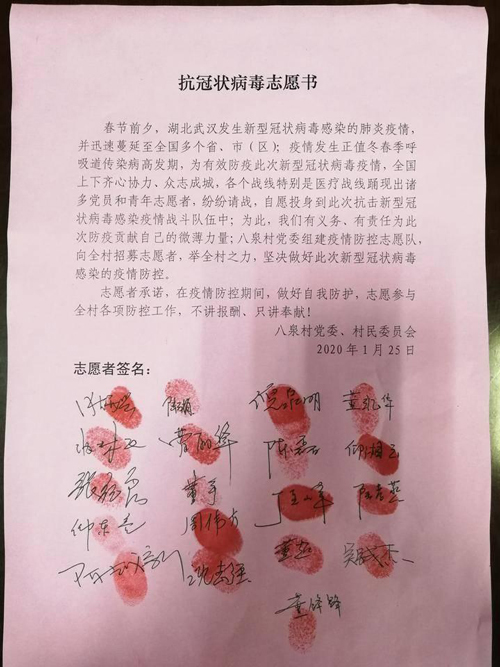 抗冠状病毒志愿书
春节前夕，湖北武汉发生新型冠状病毒感染的肺炎疫情，
并迅速蔓延至全国多个省、市（区）；疫情发生正值冬春季呼
吸道传染病高发期，为有效防疫此次新型冠状病毒疫情，全国
上下齐心协力、众志成城，各个战线特别是医疗战线踊现出诸
多党员和青年志愿者，纷纷请战，自愿投身到此次抗击新型冠
状病毒感染疫情战斗队伍中；为此，我们有义务、有责任为此
次防疫贡献自己的微薄力量；八泉村党委组建疫情防控志愿队，
向全村招募志愿者，举全村之力，坚决做好此次新型冠状病毒
感染的疫情防控。
志愿者承诺，在疫情防控期间，做好自我防护，志愿参与
全村各项防控工作，不讲报酬、只讲奉献！
八泉村党委、村民委员会
2020 年 1 月 25 日
志愿者签名：
董军
周伟方
董超